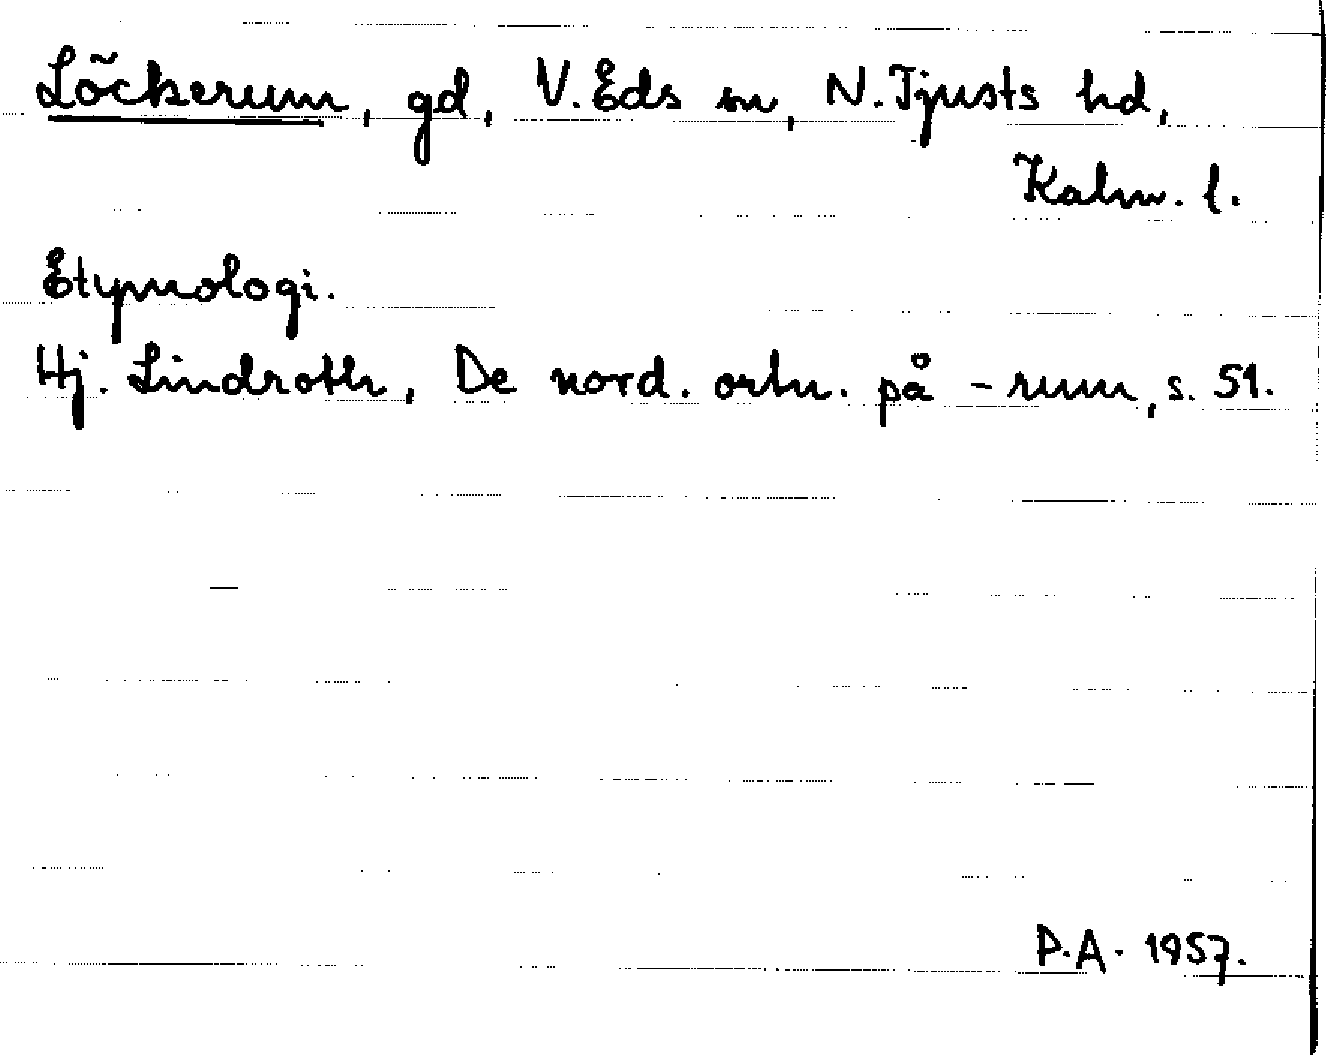 Löckerum, gd, V. Eds sn, N. Tjusts hd,
Kalm. l.
Etymologi.
Hj. Lindroth, De nord. ortn. på -rum, s. 51.
P.A. 1957.